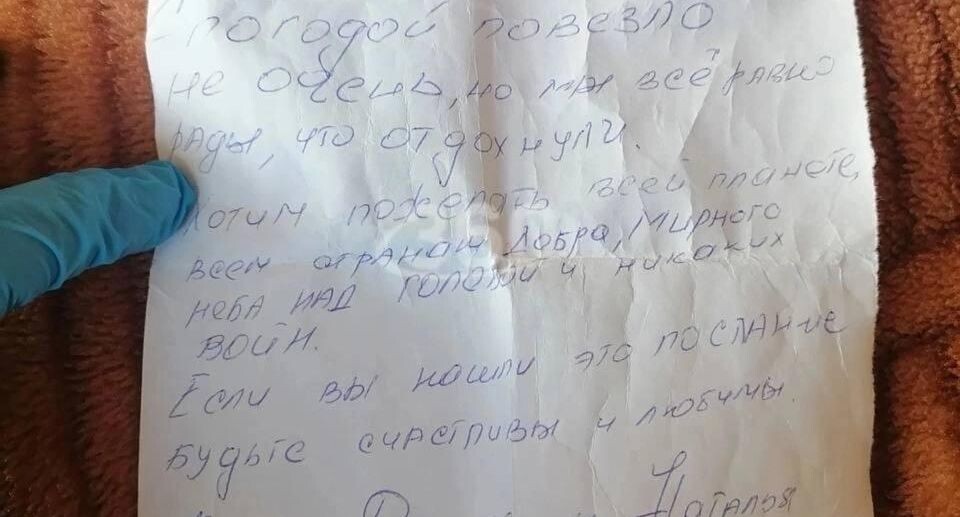 С погодой повезло
не очень, но мы всё равно
рады, что отдохнули.
Хотим пожелать всей планете,
всем странам добра, мирного
неба над головой и никаких
войн.
Если вы нашли это послание
будьте счастливы и любимы.
Наталья